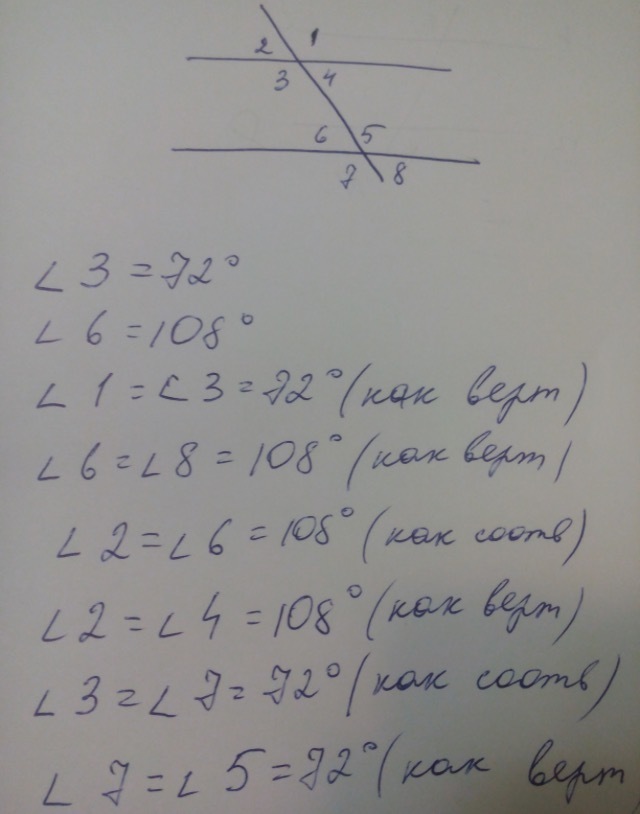 2 1
3 4
6 5
7 8
∠ 3 = 72°
∠ 6 = 108°
∠ 1 = ∠ 3 = 72° (как верт)
∠ 6 = ∠ 8 = 108° (как верт)
∠ 2 = ∠ 6 = 108° (как соотв)
∠ 2 = ∠ 4 = 108° (как верт)
∠ 3 = ∠ 7 = 72° (как соотв)
∠ 7 = ∠ 5 = 72° (как верт